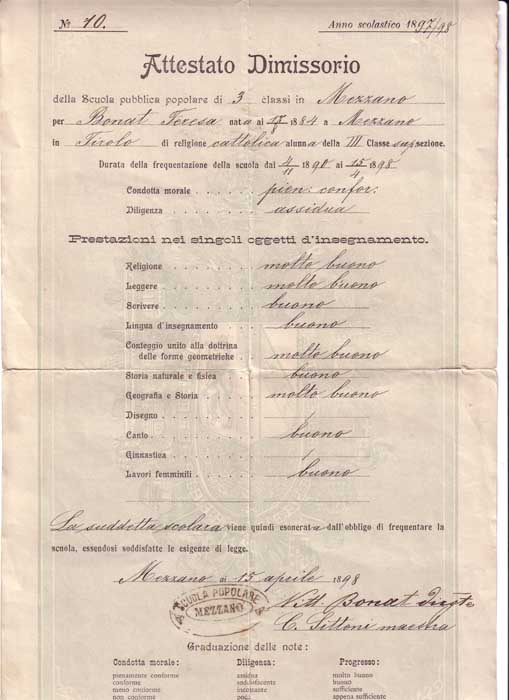 № 10.
Anno scolastico 1897/98
Attestato Dimissorio
della Scuola pubblica popolare di 3 classi in Mezzano
per Bonat Teresa nata ai 1884 a Mezzano
in Tirolo di religione cattolica alunna della III Classe sup sezione.
Durata della frequentazione della scuola dai 4/11 1890 ai 15/4 1898
Condotta morale . . . . . . pien: confor:
Diligenza . . . . . . . assidua
Prestazioni nei singoli oggetti d'insegnamento.
Religione . . . . . . . molto buono
Leggere . . . . . . . molto buono
Scrivere . . . . . . . buono
Lingua d'insegnamento . . . . buono
Conteggio unito alla dottrina
delle forme geometriche . . molto buono
Storia naturale e fisica . . . . buono
Geografia e Storia . . . . . molto buono
Disegno . . . . . . . /
Canto . . . . . . . . buono
Ginnastica . . . . . . /
Lavori femminili . . . . . buono
La suddetta scolara viene quindi esonerata dall'obbligo di frequentare la
scuola, essendosi soddisfatte le esigenze di legge.
Mezzano ai 15 aprile 1898
SCUOLA POPOLARE
MEZZANO
Vitt. Bonat Dirigte
C. Tittoni maestra
Graduazione delle note:
Condotta morale: Diligenza: Progresso:
pienamente conforme assidua molto buono
conforme soddisfacente buono
meno conforme incostante sufficiente
non conforme poca appena sufficiente